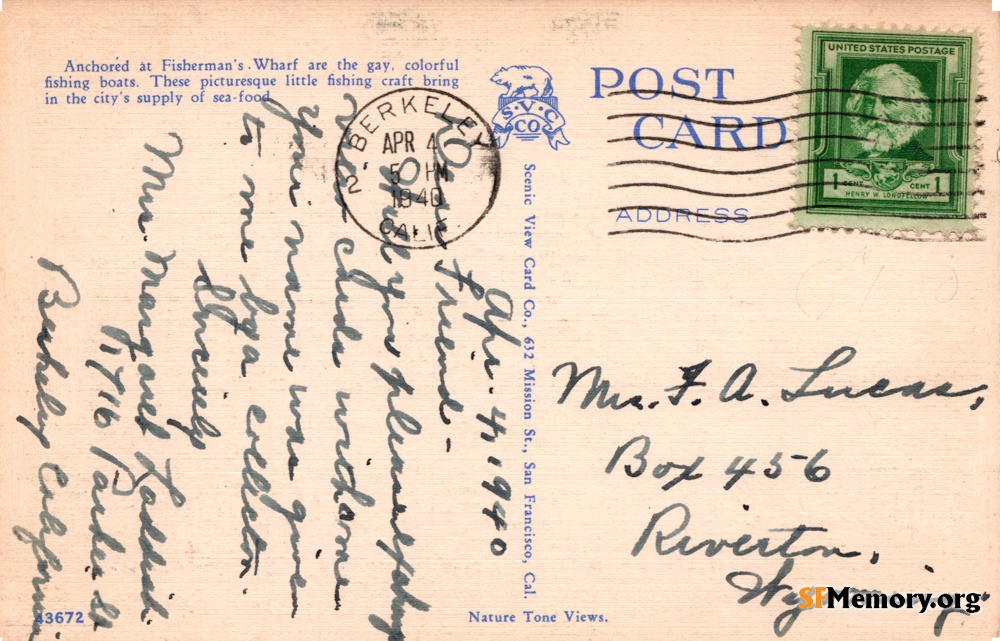 Anchored at Fisherman's Wharf are the gay, colorful
fishing boats. These picturesque little fishing craft bring
in the city's supply of sea-food
S.V.C.
CO.
POST
CARD
ADDRESS
UNITED STATES POSTAGE
1 CENT CENT 1
HENRY W. LONGFELLOW
BERKELEY
2
APR 4
5 PM
1940
CALIF.
Scenic View Card Co., 632 Mission St., San Francisco, Cal.
Apr. 4, 1940
Friend. -
you please exchange
cards with me
Your name was given
to me by a collector.
Sincerely
Mrs. Margaret
1716 Parker St
Berkeley California
Mrs. F. A. Lucas,
Box 456
Riverton,
Wyoming.
43672
Nature Tone Views.
SFMemory.org